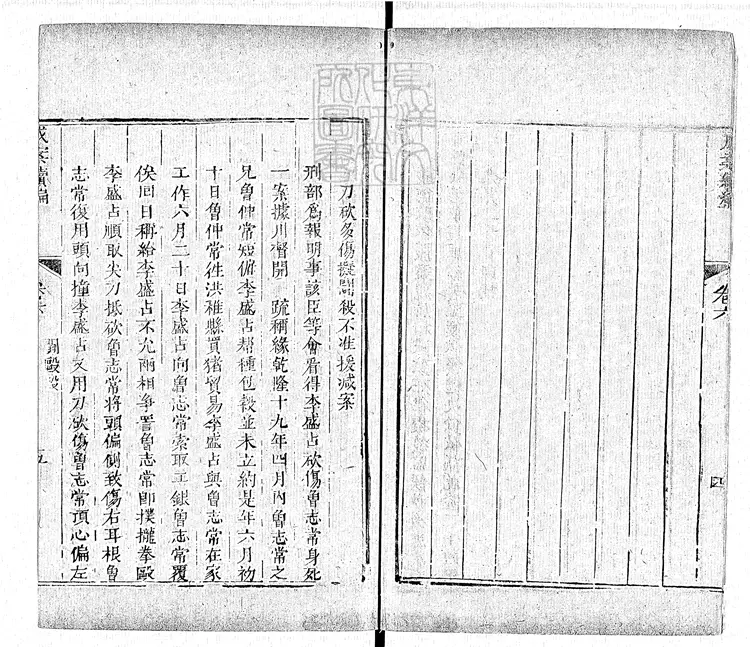 成案續編
卷六
四
刀砍多傷擬鬬殺不准援减案
刑部爲報明事該臣等會看得李盛占砍傷魯志常身死
一案據川督開 疏稱緣乾隆十九年四月內魯志常之
兄魯仲常短僱李盛占幇種包穀並未立約是年六月初
十日魯仲常徃洪雅縣買猪貿易李盛占與魯志常在家
工作六月二十日李盛占向魯志常索取工銀魯志常覆
俟囘日稱給李盛占不允兩相爭詈魯志常卽撲攏拳毆
李盛占順取尖刀抵砍魯志常將頭偏側致傷右耳根魯
志常復用頭向撞李盛占又用刀砍傷魯志常頂心偏左
成案續編
卷六
鬬毆殺
五